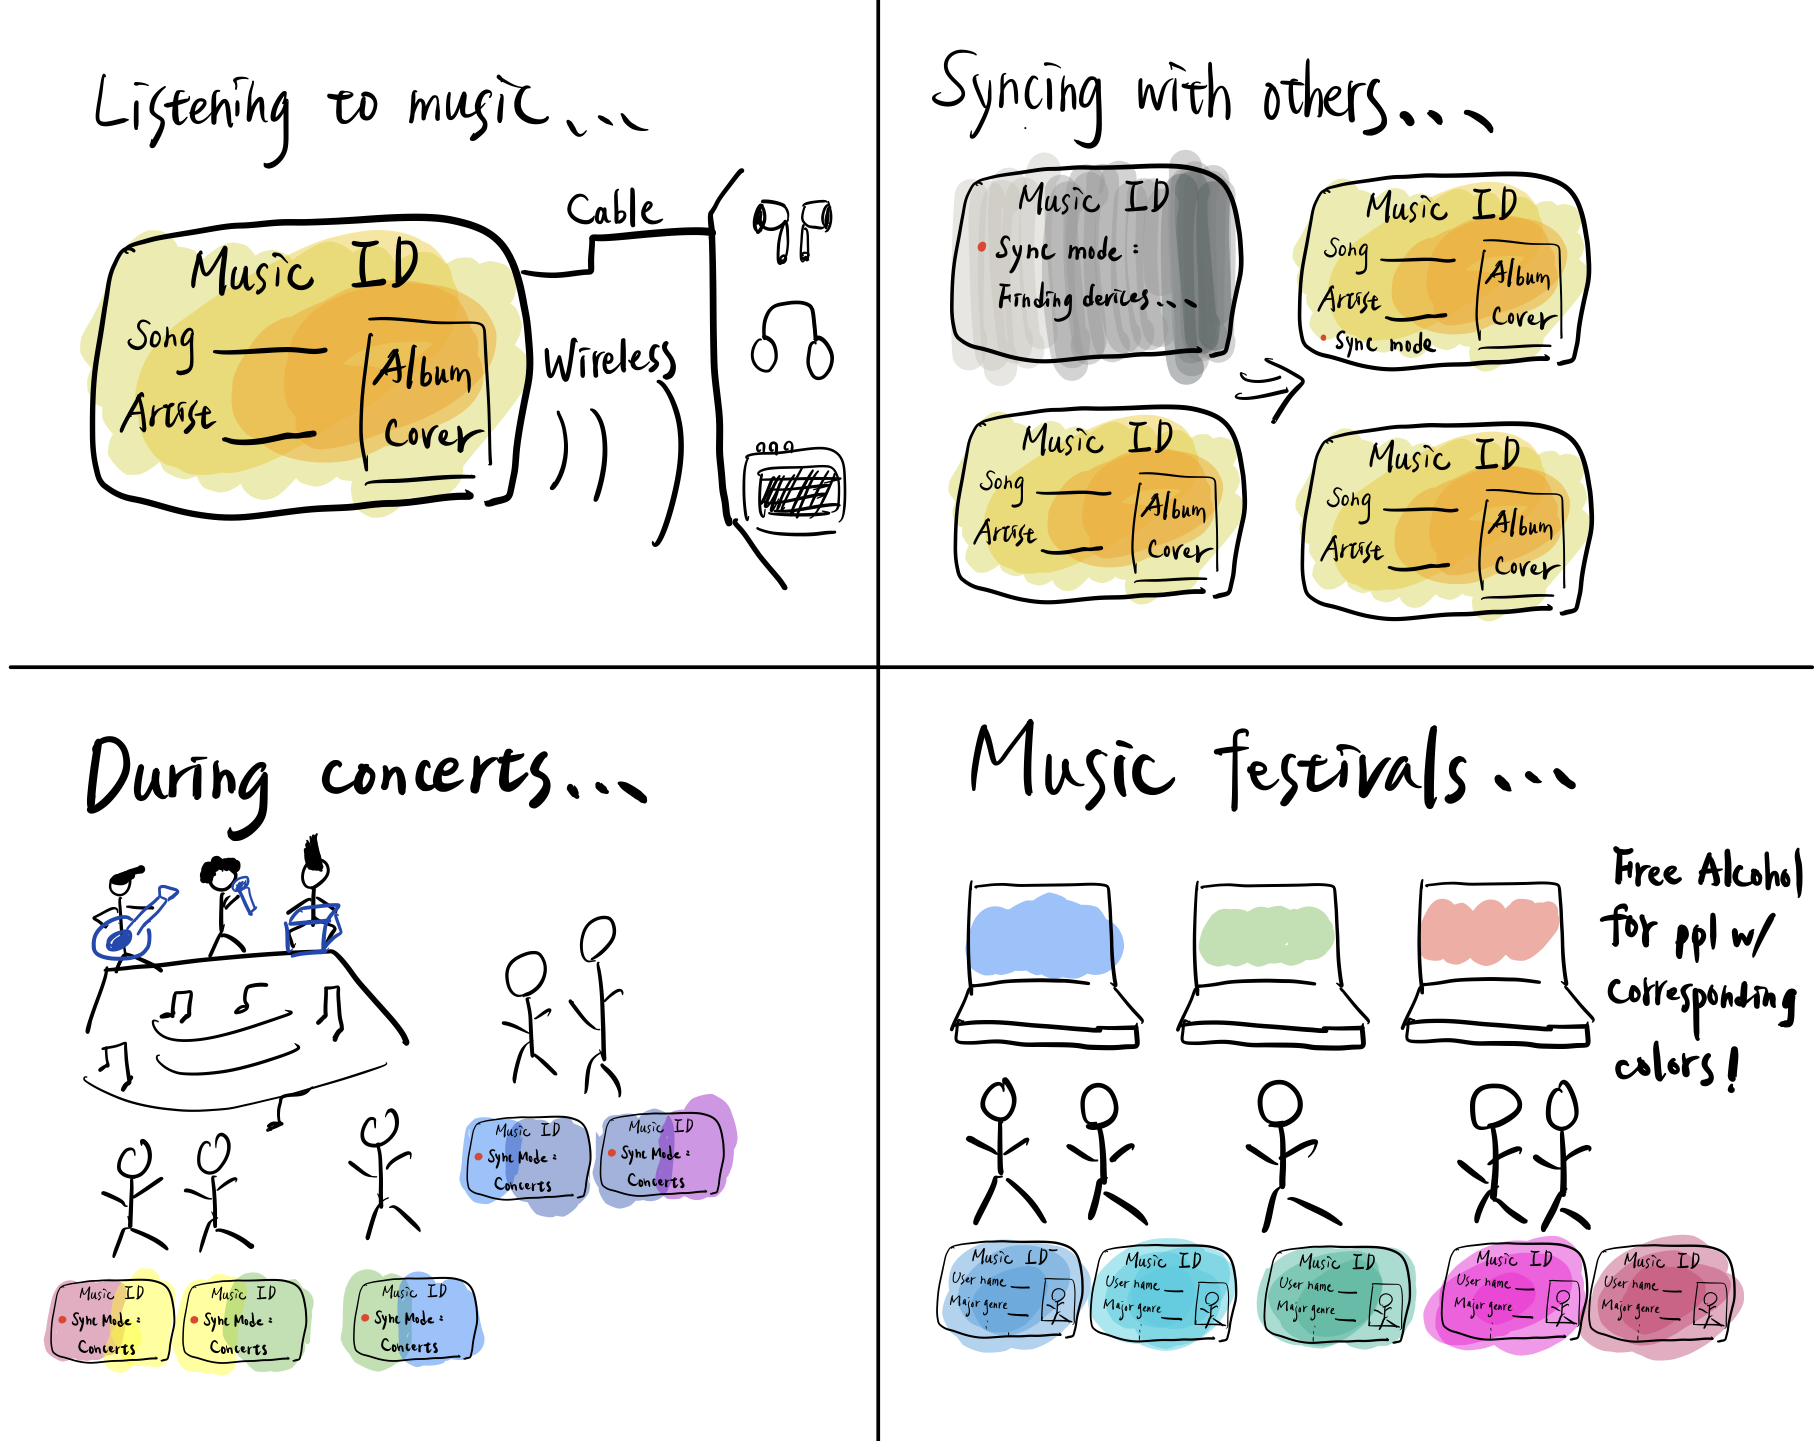 Listening to music...
Music ID
Song
Artist
Album
Cover
Cable
Wireless
Syncing with others...
Music ID
Sync mode :
Finding devices...
Music ID
Song
Artist
Album
Cover
Sync mode
Music ID
Song
Artist
Album
Cover
Music ID
Song
Artist
Album
Cover
During concerts...
Music ID
Sync Mode :
Concerts
Music ID
Sync Mode :
Concerts
Music ID
Sync Mode :
Concerts
Music ID
Sync Mode :
Concerts
Music ID
Sync Mode :
Concerts
Music festivals...
Free Alcohol
for ppl w/
corresponding
colors!
Music ID
User name
Major genre
Music ID
User name
Major genre
Music ID
User name
Major genre
Music ID
User name
Major genre
Music ID
User name
Major genre